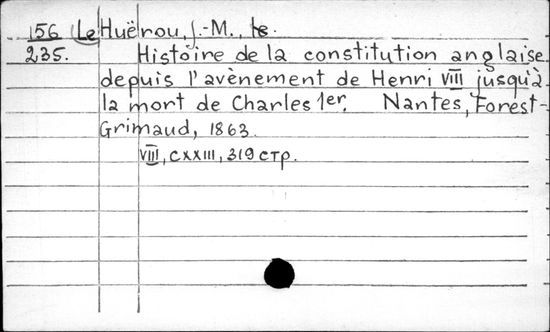 156 Le Huërou, J.-M.,
235. Histoire de la constitution anglaise
depuis l'avènement de Henri VIII jusqu'à
la mort de Charles 1er. Nantes, Forest-
Grimaud, 1863.
VIII, CXXIII, 319 стр.